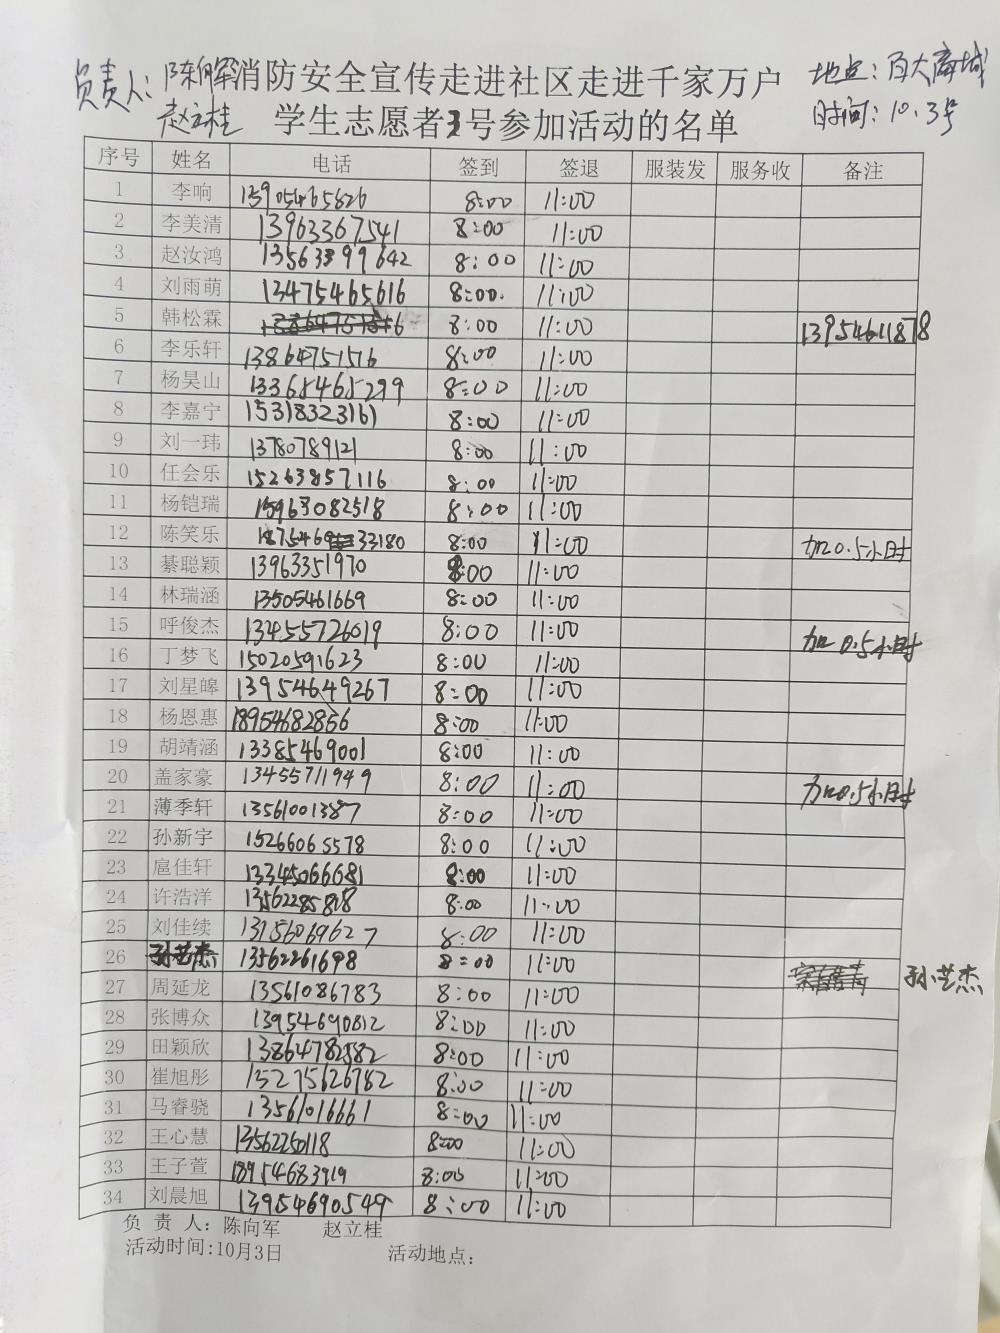 负责人：陈向军 消防安全宣传走进社区走进千家万户 地点：百大商城
赵立桂 学生志愿者3号参加活动的名单 时间：10.3号
序号 姓名 电话 签到 签退 服装发 服务收 备注
1 李响 13905465826 8:00 11:00
2 李美清 13963367541 8:00 11:00
3 赵汝鸿 13563399642 8:00 11:00
4 刘雨萌 13475465616 8:00. 11:00
5 韩松霖 8:00 11:00 13954611878
6 李乐轩 13864751516 8:00 11:00
7 杨昊山 13365465299 8:00 11:00
8 李嘉宁 15318323161 8:00 11:00
9 刘一玮 13780789121 8:00 11:00
10 任会乐 15263857116 8:00 11:00
11 杨铠瑞 15963082518 8:00 11:00
12 陈笑乐 18754633180 8:00 11:00 加0.5小时
13 綦聪颖 13963351970 8:00 11:00
14 林瑞涵 13505461669 8:00 11:00
15 呼俊杰 13455726019 8:00 11:00 加0.5小时
16 丁梦飞 15020591623 8:00 11:00
17 刘星皞 13954649267 8:00 11:00
18 杨恩惠 18954682856 8:00 11:00
19 胡靖涵 13385469001 8:00 11:00
20 盖家豪 13455711949 8:00 11:00 加0.5小时
21 薄季轩 13561001387 8:00 11:00
22 孙新宇 15266065578 8:00 11:00
23 扈佳轩 13345066681 8:00 11:00
24 许浩洋 13562285818 8:00 11:00
25 刘佳续 13156069627 8:00 11:00
26 孙艺杰 13562261698 8:00 11:00 孙艺杰
27 周延龙 13561086783 8:00 11:00
28 张博众 13954690812 8:00 11:00
29 田颖欣 13864782582 8:00 11:00
30 崔旭彤 15275626782 8:00 11:00
31 马睿骁 13561016661 8:00 11:00
32 王心慧 13562250118 8:00 11:00
33 王子萱 18954683919 8:00 11:00
34 刘晨旭 13954690549 8:00 11:00
负 责 人：陈向军 赵立桂
活动时间:10月3日 活动地点：